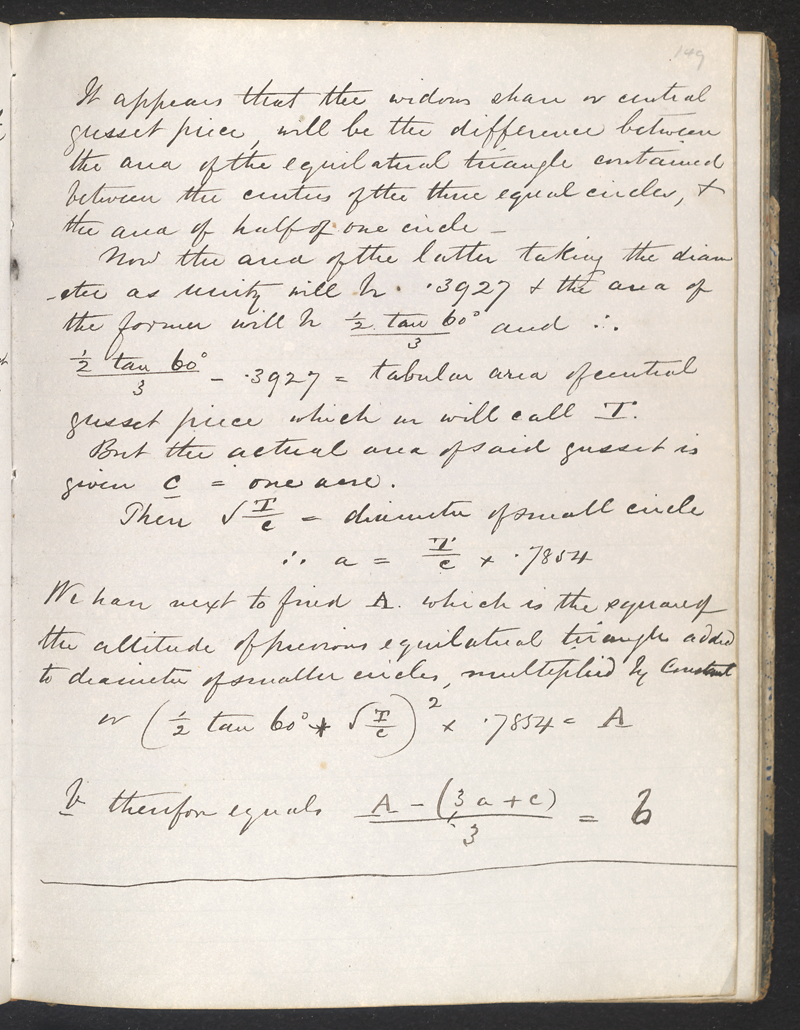 149
It appears that the widows share or central
gusset piece, will be the difference between
the area of the equilateral triangle contained
between the centres of the three equal circles, &
the area of half of one circle –
Now the area of the latter taking the diam
-eter as unity will be .3927 & the area of
the former will be ½ tan 60° / 3 and ∴
½ tan 60° / 3 - .3927 = tabular area of central
gusset piece which we will call T.
But the actual area of said gusset is
given c = one acre.
Then √T/c = diameter of small circle
∴ a = T/c × .7854
We have next to find A. which is the square of
the altitude of previous equilateral triangle added
to diameter of smaller circles, multiplied by Constant
or (½ tan 60° + √T/c)² × .7854 = A
b therefore equals A - (3a + c) / 3 = b